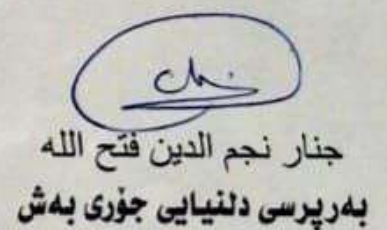 جنار نجم الدين فتح الله
بەرپرسی دلنیایی جۆری بەش